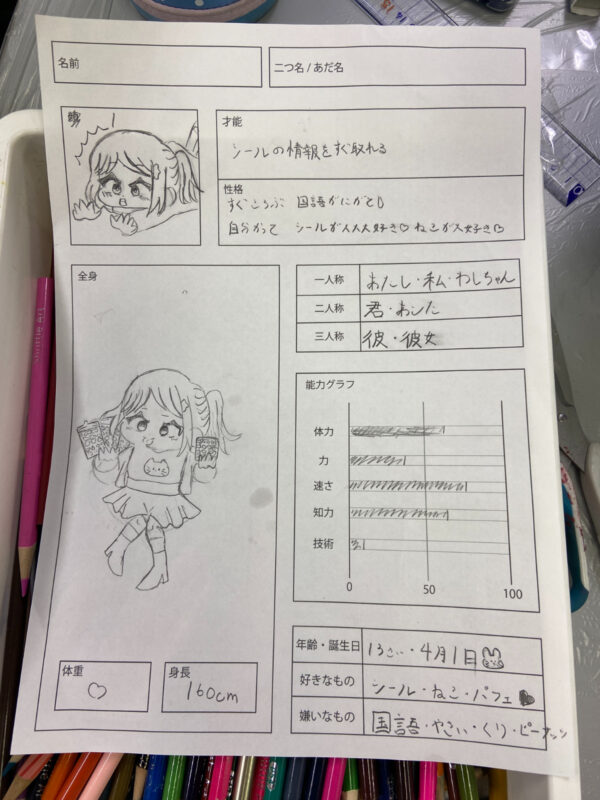 名前
二つ名 / あだ名
顔
才能
シールの情報をすぐ取れる
性格
すぐころぶ 国語がにがて
自分かって シールが大大大好き♡ ねこが大好き
全身
一人称 あたし・私・わしちゃん
二人称 君・あんた
三人称 彼・彼女
能力グラフ
体力
力
速さ
知力
技術
0 50 100
体重 ♡
身長 160cm
年齢・誕生日 13さい・4月1日
好きなもの シール・ねこ・パフェ
嫌いなもの 国語・やさい・くり・ピーナッツ